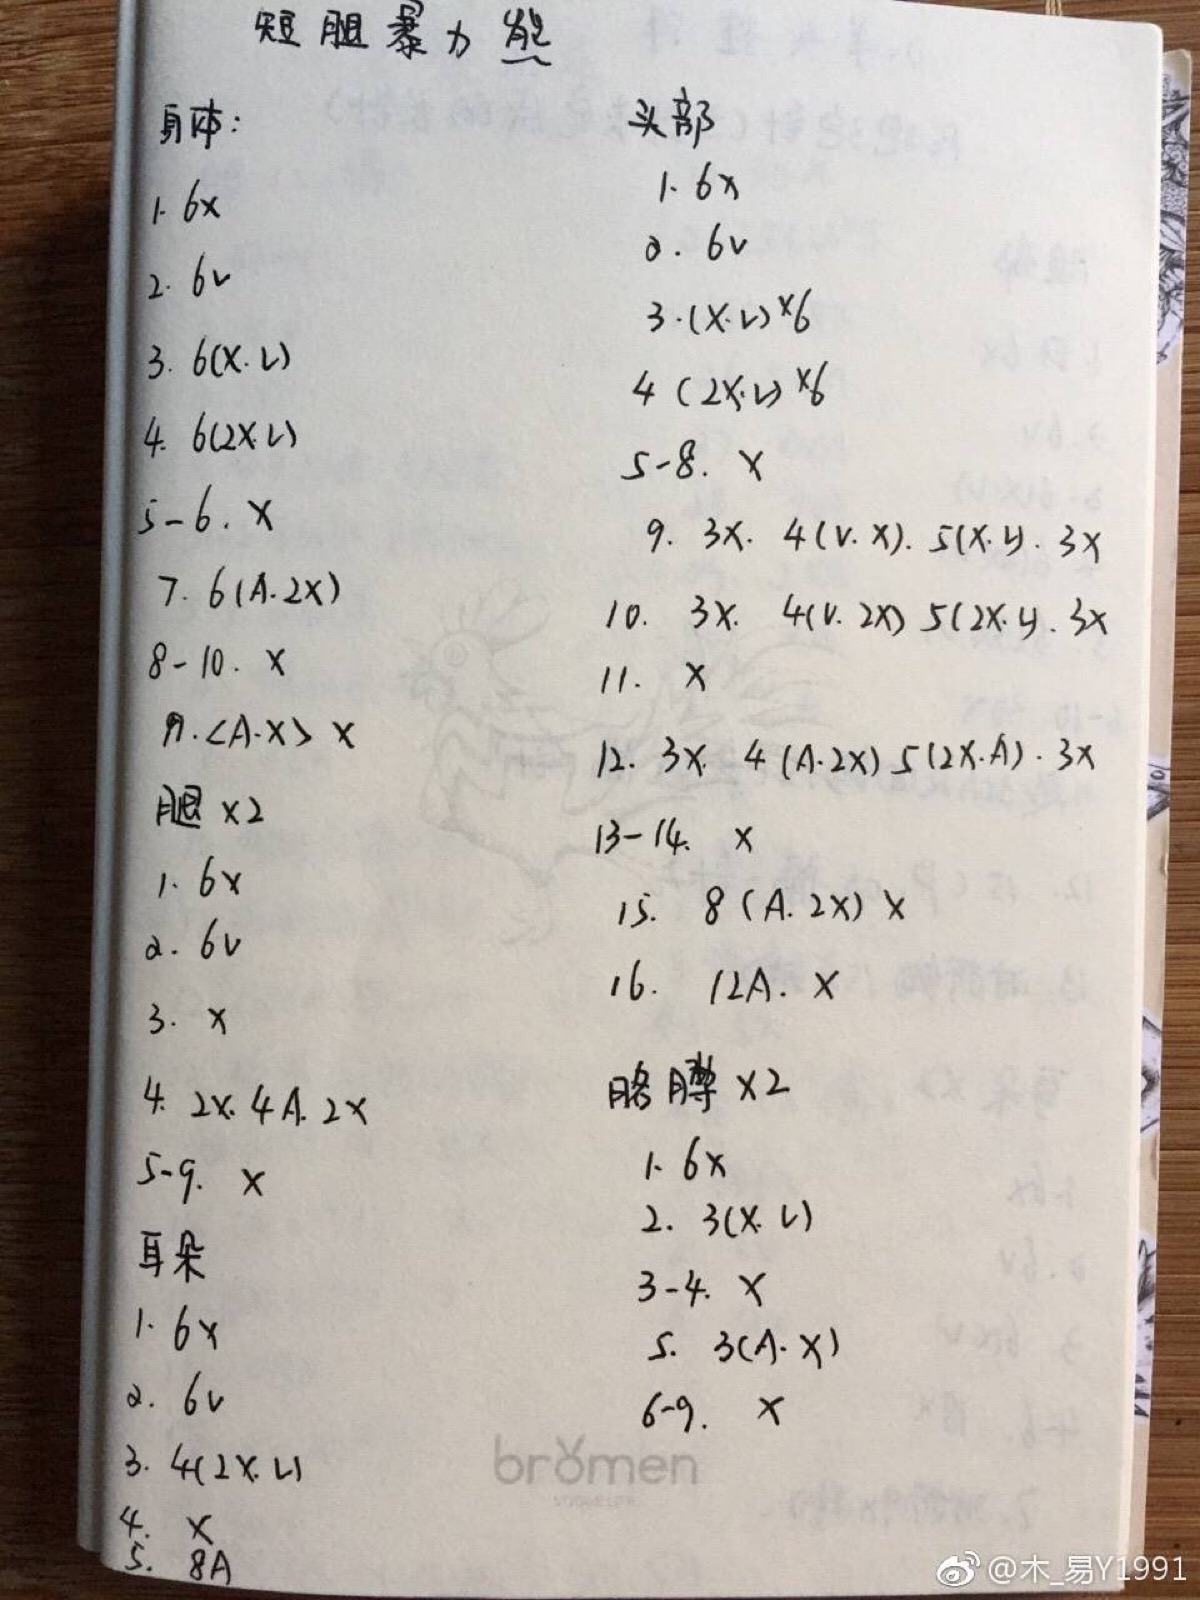 短胆暴力熊
身体:
1. 6x
2. 6v
3. 6(x.v)
4. 6(2x.v)
5-6. x
7. 6(A.2x)
8-10. x
9.<A.x> x
腿x2
1. 6x
2. 6v
3. x
4. 2x.4A.2x
5-9. x
耳朵
1. 6x
2. 6v
3. 4(2x.v)
4. x
5. 8A
头部
1. 6x
2. 6v
3.(x.v)x6
4 (2x.v)x6
5-8. x
9. 3x. 4(v.x). 5(x.v). 3x
10. 3x. 4(v.2x) 5(2x.v). 3x
11. x
12. 3x. 4(A.2x) 5(2x.A). 3x
13-14. x
15. 8(A.2x) x
16. 12A. x
胳膊x2
1. 6x
2. 3(x.v)
3-4. x
5. 3(A.x)
6-9. x
bromen
@木_易Y1991